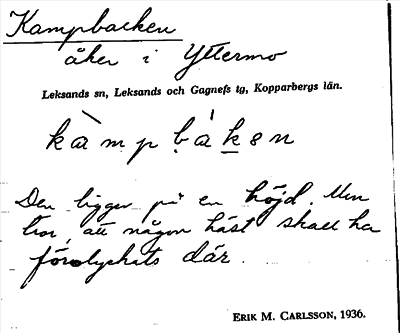 Kampbacken
åker i Yttermo
Leksands sn, Leksands och Gagnefs tg, Kopparbergs län.
kàmpbákən
Den ligger på en höjd. Men
tror, att någon häst skall ha
förolyckats där.
ERIK M. CARLSSON, 1936.